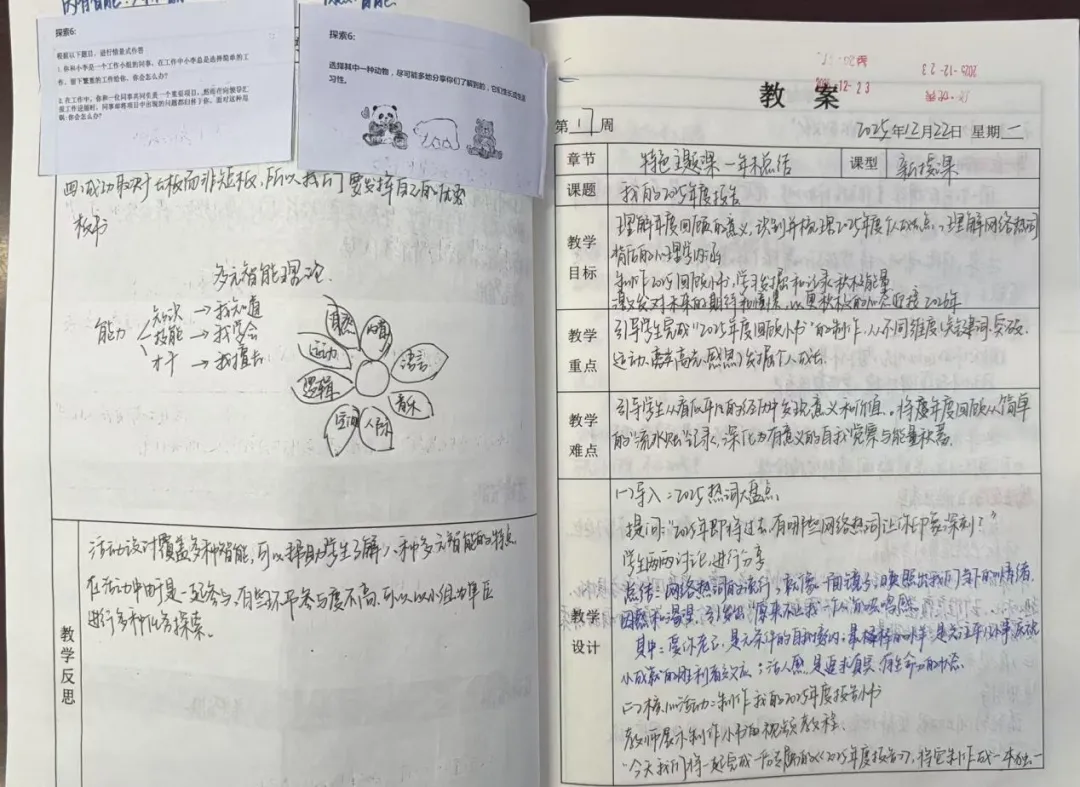 探索6:
根据以下题目，进行情景式作答
1.你和小李是一个工作小组的同事，在工作中小李总是选择简单的工
作，留下繁重的工作给你，你会怎么办？
2.在工作中，你和一位同事共同负责一个重要项目，
报工作进展时，同事却将项目中出现的问题都归咎于你，面对这种局
面，你会怎么办？
探索6:
选择其中一种动物，尽可能多地分享你们了解到的，它们生长或生活
习性。
四、成功取决于长板而非短板，所以我们要发挥自己的优势
板书
多元智能理论
能力
知识→我知道
技能→我学会
才干→我擅长
自然
内省
语言
音乐
人际
空间
逻辑
运动
教学反思
活动设计覆盖多种智能，可以帮助学生了解八种多元智能的特点
在活动中由于是一起参与，有些环节参与度不高，可以以小组为单位
进行多种任务探索。
教案
第17周
2025年12月22日 星期一
章节
特色主题课—年末总结
课型
新授课
课题
我的2025年度报告
教学目标
理解年度回顾的意义，识别并梳理2025年度个人成长点，理解网络热词
背后的心理学内涵
制作2025回顾小书，学习发掘和记录积极能量
激发对未来的期待和憧憬，以更积极的心态迎接2026年
教学重点
引导学生完成“2025年度回顾小书”的制作，从不同维度（关键词、突破、
运动、高光、感恩）发掘个人成长
教学难点
引导学生从看似平凡的经历中发现意义和价值，将年度回顾从简单
的“流水账”记录，深化为有意义的自我觉察与能量积蓄
教学设计
(一)导入：2025热词大盘点
提问：“2025年即将过去，有哪些网络热词让你印象深刻？”
学生两两讨论，进行分享
总结：网络热词的流行，就像一面镜子，映照出我们当下的情绪、
困惑和渴望，引发出“原来不止我一个人”的共鸣感。
其中：爱你老己，是无条件的自我接纳；
小成就的胜利者效应；活人感，是追求真实、有生命力的状态
(二)核心活动：制作我的2025年度报告小书
教师展示制作小书的视频教程
“今天我们将一起完成一份专属的《2025年度报告》，将它制作成一本独一